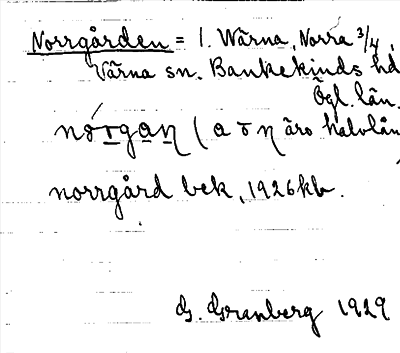 Norrgården = 1. Wärna, Norra 3/4,
Värna sn. Bankekinds hd
Ögl. län.
nórgaṉ (a o ŋ äro halvlån
norrgård bek, 1926 kb.
G. Granberg 1929